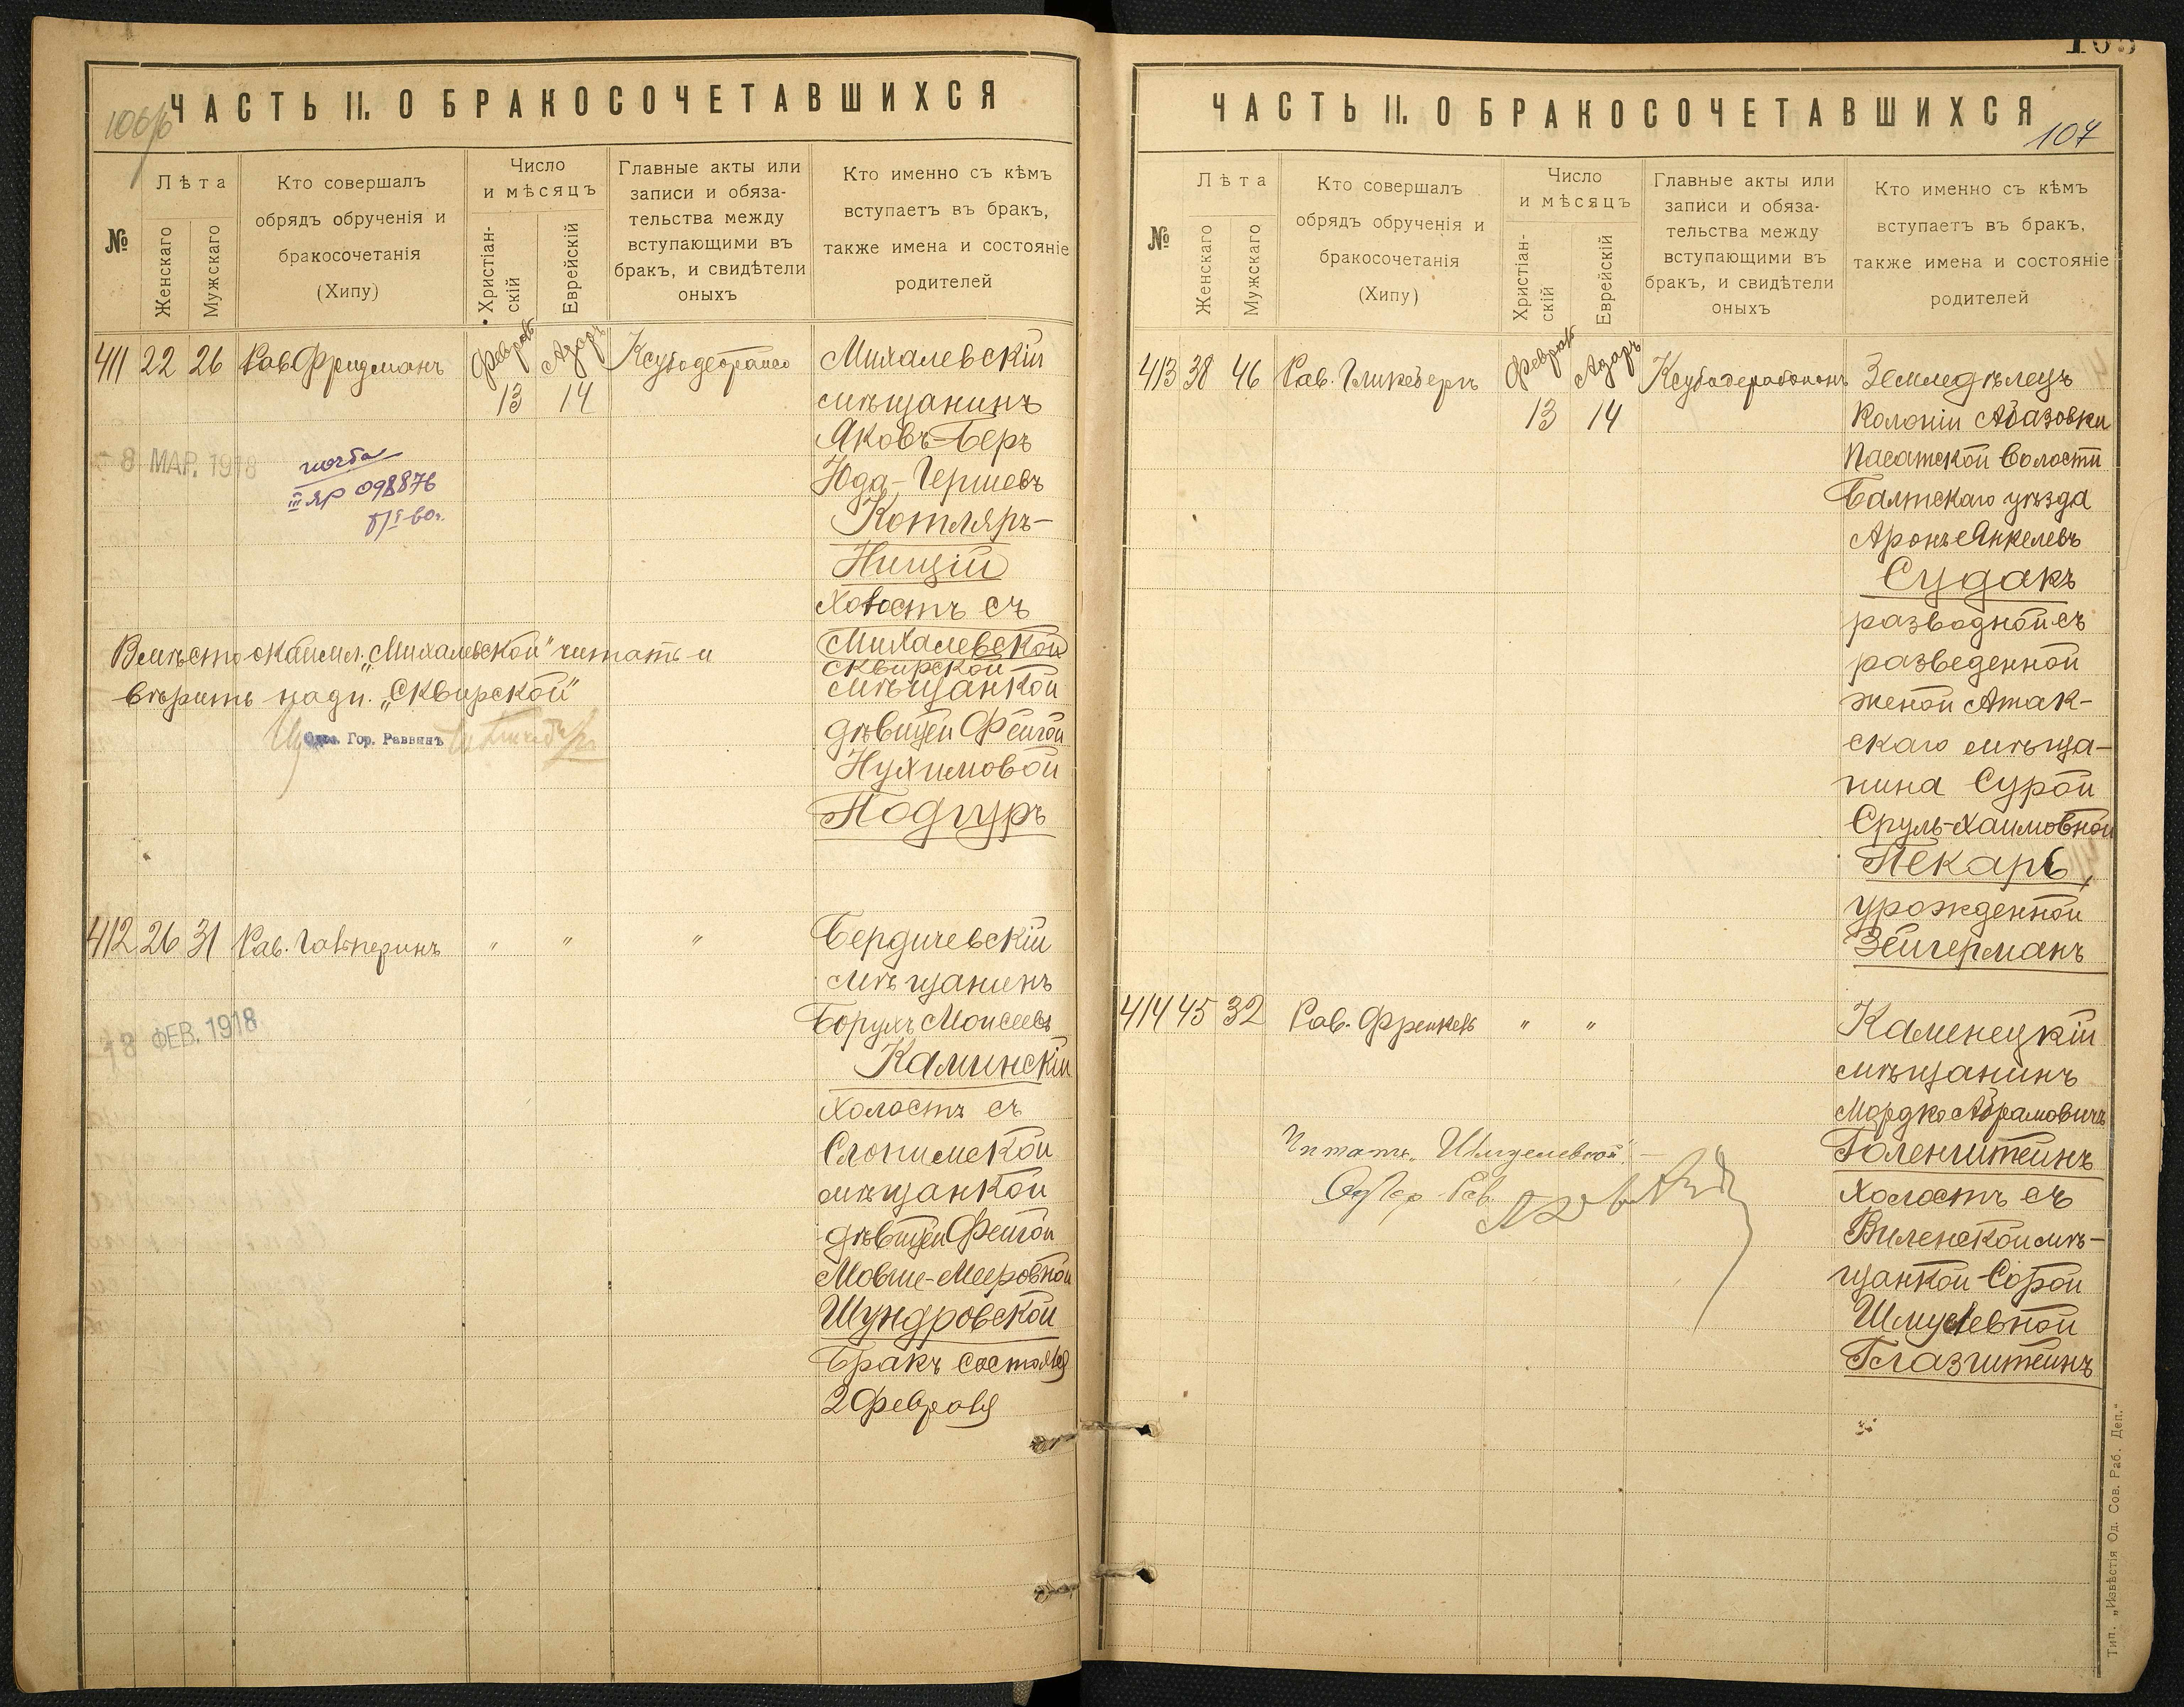 ЧАСТЬ II. О БРАКОСОЧЕТАВШИХСЯ
№
Лѣта
Женскаго
Мужскаго
Кто совершалъ
обрядъ обрученія и
бракосочетанія
(Хипу)
Число
и мѣсяцъ
Христіан-
скій
Еврейскій
Главные акты или
записи и обяза-
тельства между
вступающими въ
бракъ, и свидѣтели
оныхъ
Кто именно съ кѣмъ
вступаетъ въ бракъ,
также имена и состояніе
родителей
411 22 26 Рав. Фридманъ
Февраль
13
Адаръ
14
Михалевскій
мѣщанинъ
Яковъ-Беръ
Юда-Гершевъ
Котляръ-
Нищій
холостъ съ
Михалевской
сквирской
мѣщанкой
дѣвицей Фейгой
Нухимовой
Подгуръ
8 МАР. 1918
III ЯР 098876
Вмѣсто оскаймл. „Михалевской" читать и
вѣрить надп. „Сквирской"
Гор. Раввинъ
412 26 31 Рав. Гальперинъ " " "
Бердичевскій
мѣщанинъ
Борухъ Моисеевъ
Каминскій
холостъ съ
Слонимской
мѣщанкой
дѣвицей Фейгой
Мовше-Мееровной
Шундровской
Бракъ состоялся
2 Февраля
18 ФЕВ. 1918
ЧАСТЬ II. О БРАКОСОЧЕТАВШИХСЯ
107
№
Лѣта
Женскаго
Мужскаго
Кто совершалъ
обрядъ обрученія и
бракосочетанія
(Хипу)
Число
и мѣсяцъ
Христіан-
скій
Еврейскій
Главные акты или
записи и обяза-
тельства между
вступающими въ
бракъ, и свидѣтели
оныхъ
Кто именно съ кѣмъ
вступаетъ въ бракъ,
также имена и состояніе
родителей
413 38 46 Рав. Гликбергъ
Февраль
13
Адаръ
14
Земледѣлецъ
Колоніи Абазовки
Пасатской волости
Балтскаго уѣзда
Аронъ Янкелевъ
Судакъ
разводной съ
разведенной
женой Атак-
скаго мѣща-
нина Сурой
Сруль-Хаимовной
Пекарь,
урожденной
Зейгерманъ
414 45 32 Рав. Френкель " "
Каменецкій
мѣщанинъ
Мордко Абрамовичъ
Голенштейнъ
холостъ съ
Виленской мѣ-
щанкой Сорой
Шмулевной
Глазштейнъ
Читать „Шмулевной".
Тип. „Извѣстія Од. Сов. Раб. Деп."